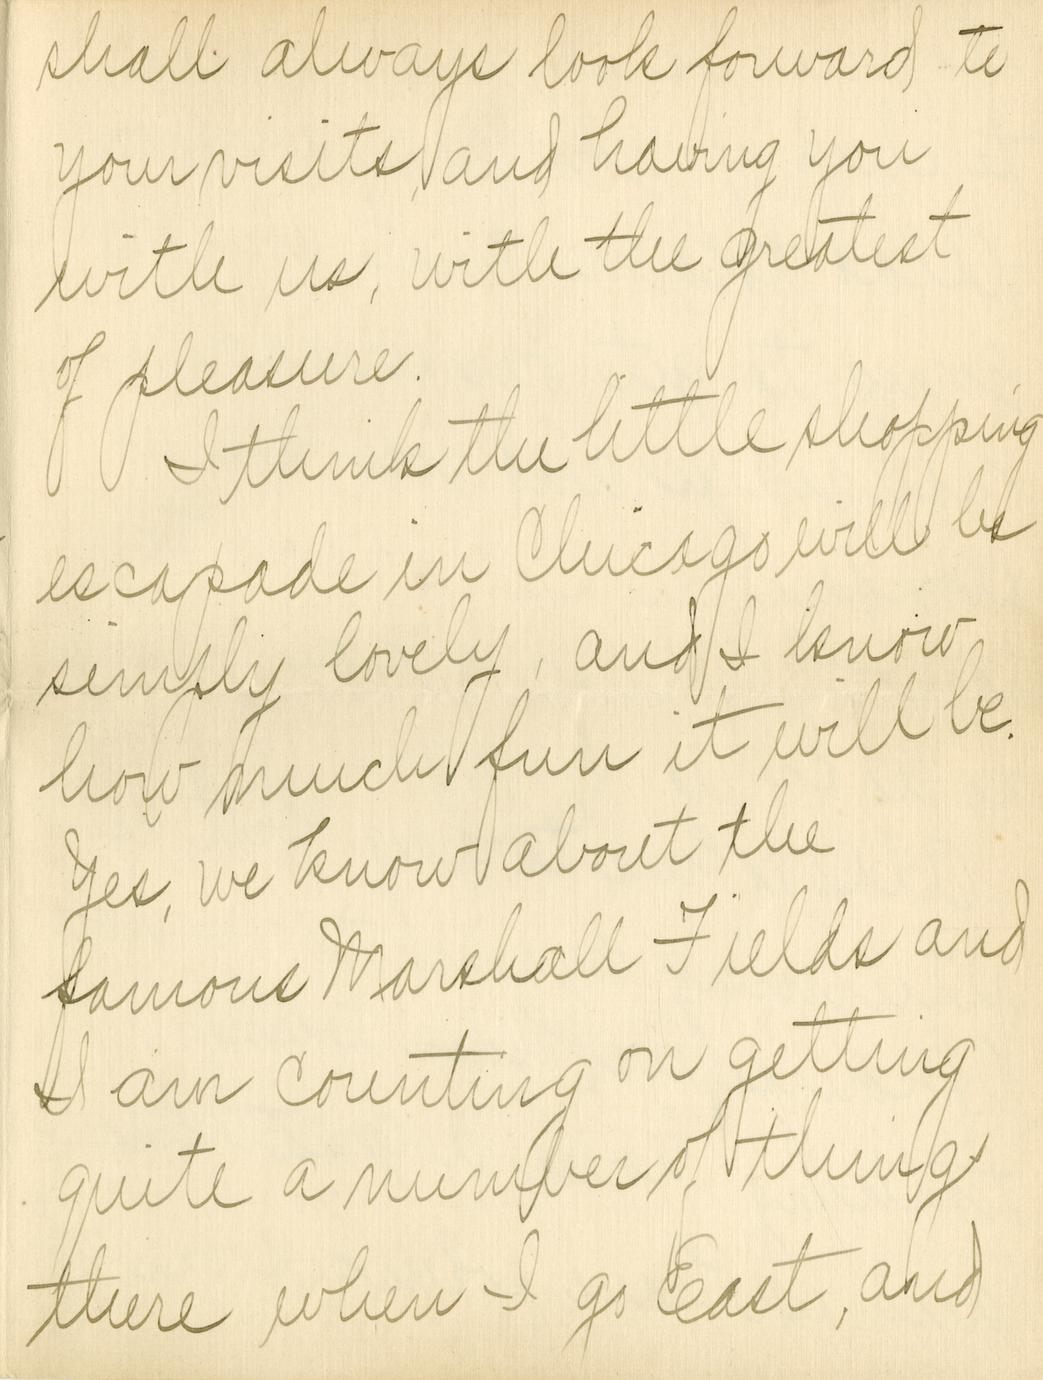 shall always look forward to
your visits, and having you
with us, with the greatest
of pleasure.
I think the little shopping
escapade in Chicago will be
simply lovely, and I know
how much fun it will be.
Yes, we know about the
famous Marshall Fields and
I am counting on getting
quite a number of things
there when I go East, and